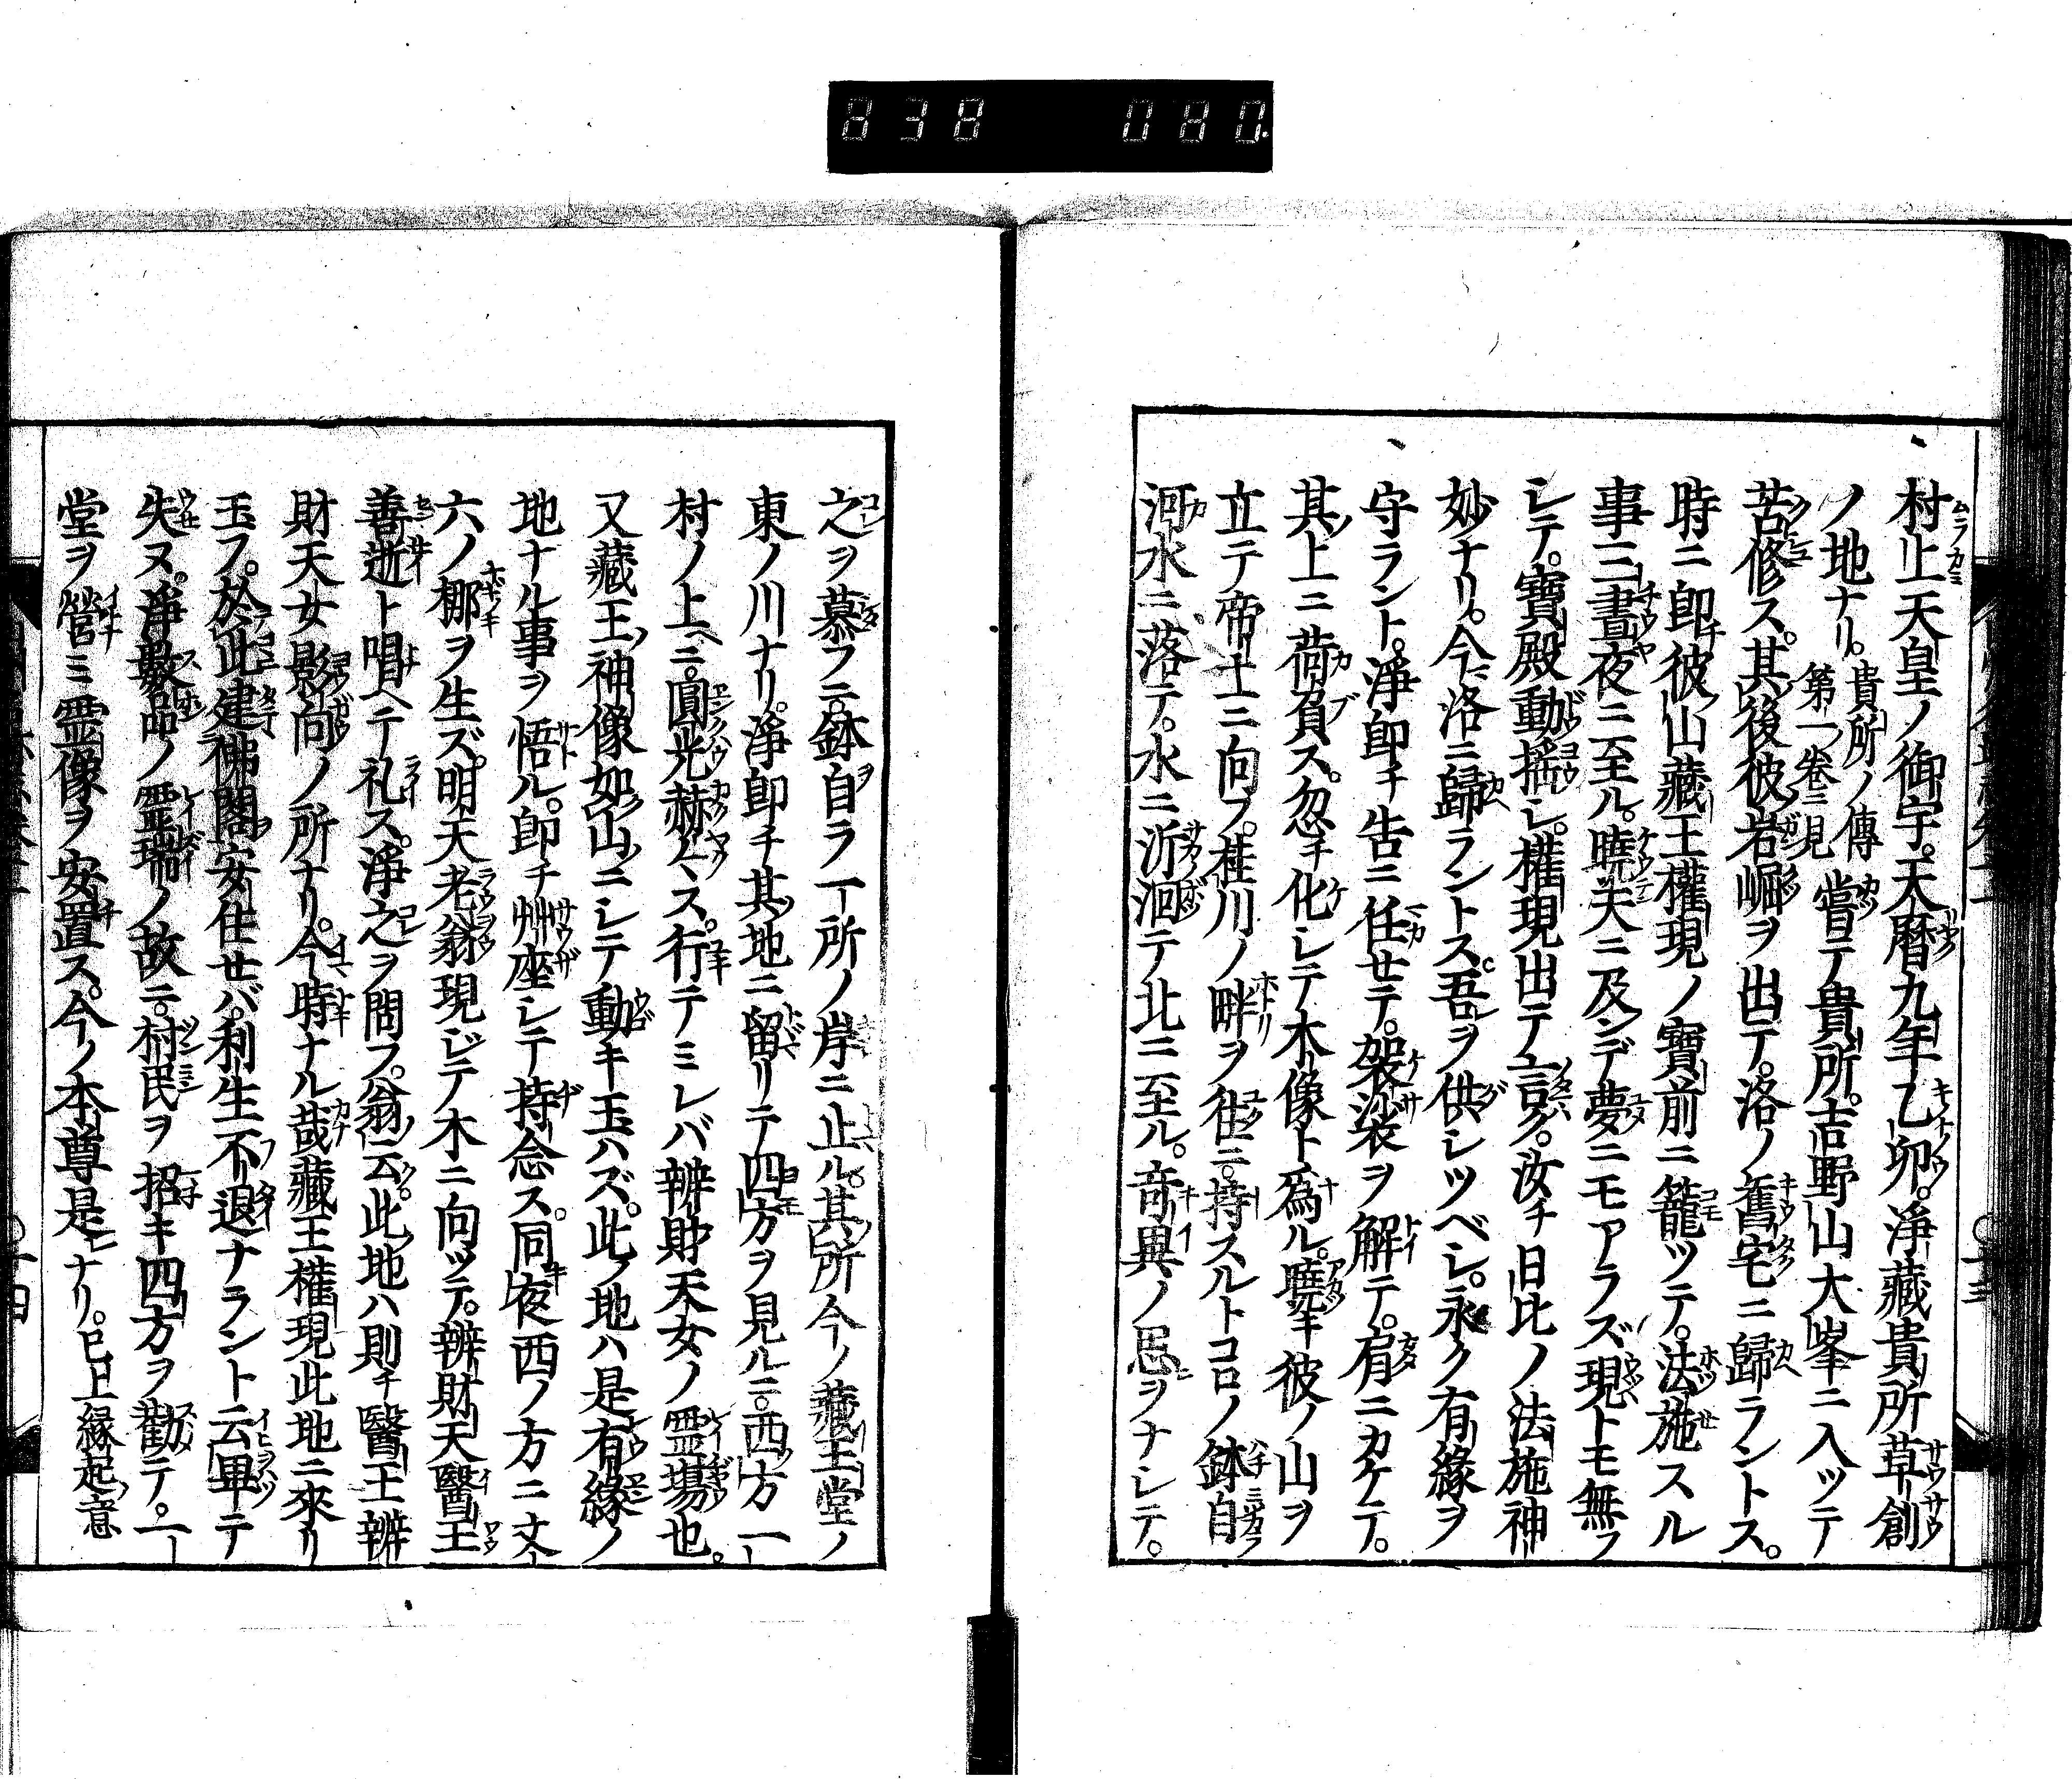 838 080
村上天皇ノ御宇。天暦九年乙卯。淨藏貴所草創
ノ地ナリ。貴所ノ傳第一卷ニ見嘗テ貴所。吉野山大峯ニ入ツテ
苦修ス。其後彼岩崛ヲ出テ。洛ノ舊宅ニ歸ラントス。
時ニ卽チ彼山藏王權現ノ寶前ニ籠ツテ。法施スル
事三晝夜ニ至ル。曉天ニ及ンデ夢ニモアラズ現トモ無フ
シテ。寶殿動搖シ。權現出テ言ク。汝チ日比ノ法施神
妙ナリ。今洛ニ歸ラントス。吾ヲ供シツベシ。永ク有緣ヲ
守ラント。淨卽チ告ニ任セテ。袈裟ヲ解テ。肩ニカケテ。
其上ニ荷負ス。忽チ化シテ木像ト爲ル。曉キ彼ノ山ヲ
立テ帝土ニ向フ。桂川ノ畔ヲ往ニ。持スルトコロノ鉢自
河水ニ落テ。水ニ泝洄テ北ニ至ル。奇異ノ思ヲナシテ。
之ヲ慕フニ。鉢自ラ一所ノ岸ニ止ル。其所今ノ藏王堂ノ
東ノ川ナリ。淨卽チ其地ニ留リテ四方ヲ見ルニ。西方一
村ノ上ニ。圓光赫々ス。行テミレバ辨財天女ノ霊場也。
又藏王ノ神像如山ニシテ動キ玉ハズ。此ノ地ハ是有緣ノ
地ナル事ヲ悟ル。卽チ艸座シテ持念ス。同夜西ノ方ニ丈
六ノ梛ヲ生ズ。明天老翁現ジテ木ニ向ツテ。辨財天醫王
善逝ト唱ヘテ礼ス。淨之ヲ問フ。翁云ク。此地ハ則チ醫王辨
財天女影向ノ所ナリ。今時ナル哉藏王權現此地ニ來リ
玉フ。於此建佛閣安住セバ。利生不退ナラント云畢テ
失ヌ。淨數品ノ霊瑞ノ故ニ。村民ヲ招キ四方ヲ勸テ。一
堂ヲ營ミ霊像ヲ安置ス。今ノ本尊是ナリ。已上緣起ノ意